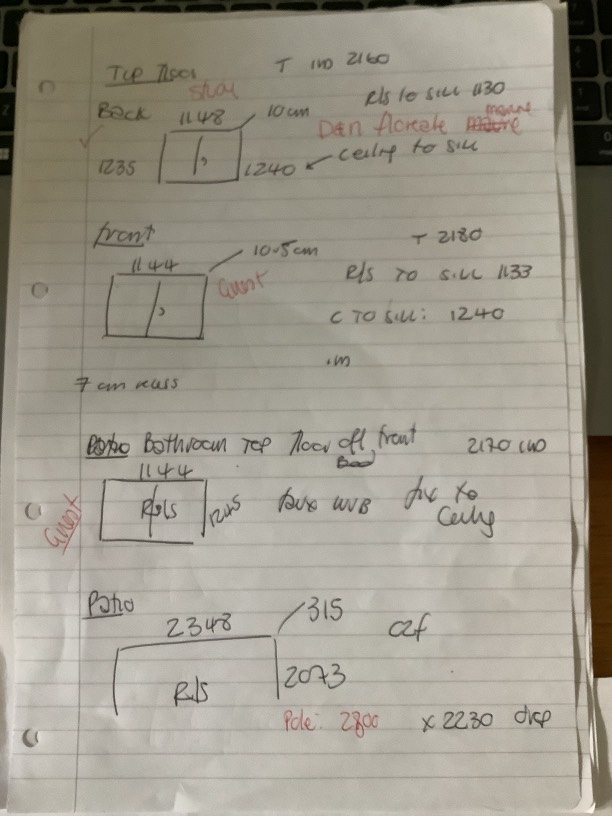 Top floor T 2160
R/S to sill 1130
Back 1148 10cm
marine
1235 1240 ceiling to sill
front
10.5cm T 2180
1144 Guest R/S TO SILL 1133
C TO SILL: 1240
7 cm recess
Patio Bathroom Top floor off front 2170
Bed
1144
Guest R/S faux WB fix to
Ceiling
Patio
2348 315
2073
R/S
Pole: 2800 x 2230 drop